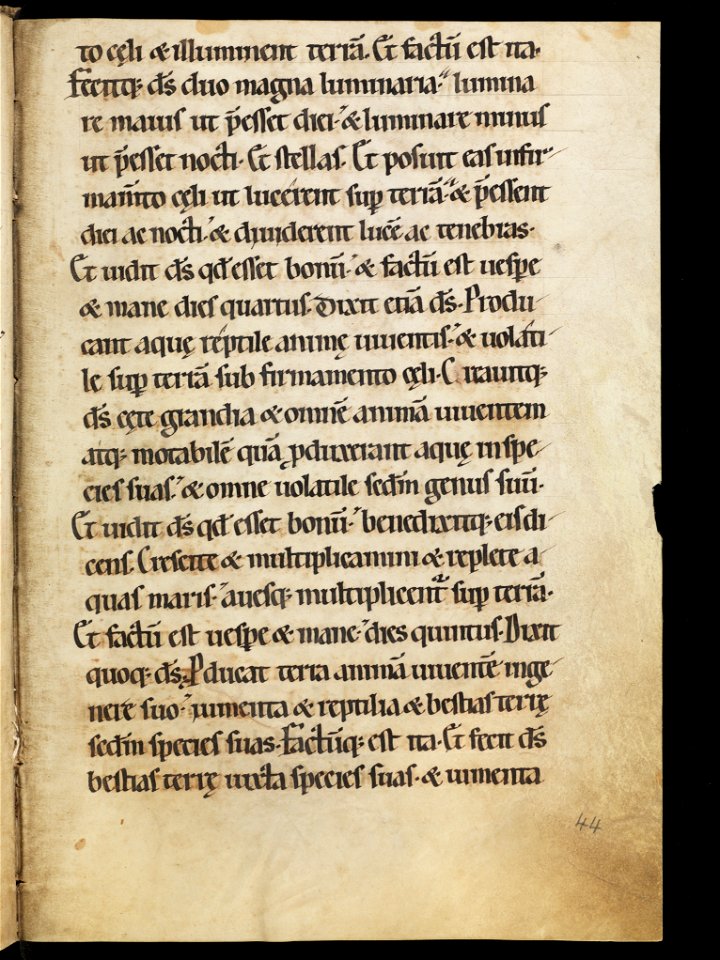 to cęli & illuminent terrā. Et factū est ita.
Fecitq; d̄s duo magna luminaria. lumina
re maius ut p̄esset diei. & luminare minus
ut p̄esset nocti. Et stellas. Et posuit eas in fir-
mam̄to cęli ut lucerent sup terrā. & p̄essent
diei ac nocti. & diuiderent lucē ac tenebras.
Et uidit d̄s qd esset bonū. & factū est uesp̄e
& mane dies quartus. Dixit etiā d̄s. Produ-
cant aquę reptile animę uiuentis. & uolati-
le sup terrā sub firmamento cęli. Creauitq;
d̄s cęte grandia & omnē animā uiuentem
atq; motabilē quā ꝓduxerant aquę in spe-
cies suas. & omne uolatile sedm̄ genus suū.
Et uidit d̄s qd esset bonū. benedixitq; eis di-
cens. Crescite & multiplicamini & replete a-
quas maris. auesq; multiplicent᷑ sup terrā.
Et factū est uesp̄e & mane. dies quintus. Dixit
quoq; d̄s. Ꝓducat terra animā uiuentē in ge-
nere suo. iumenta & reptilia & bestias terrę
sedm̄ species suas. Factūq; est ita. Et fecit d̄s
bestias terrę iuxta species suas. & iumenta
44